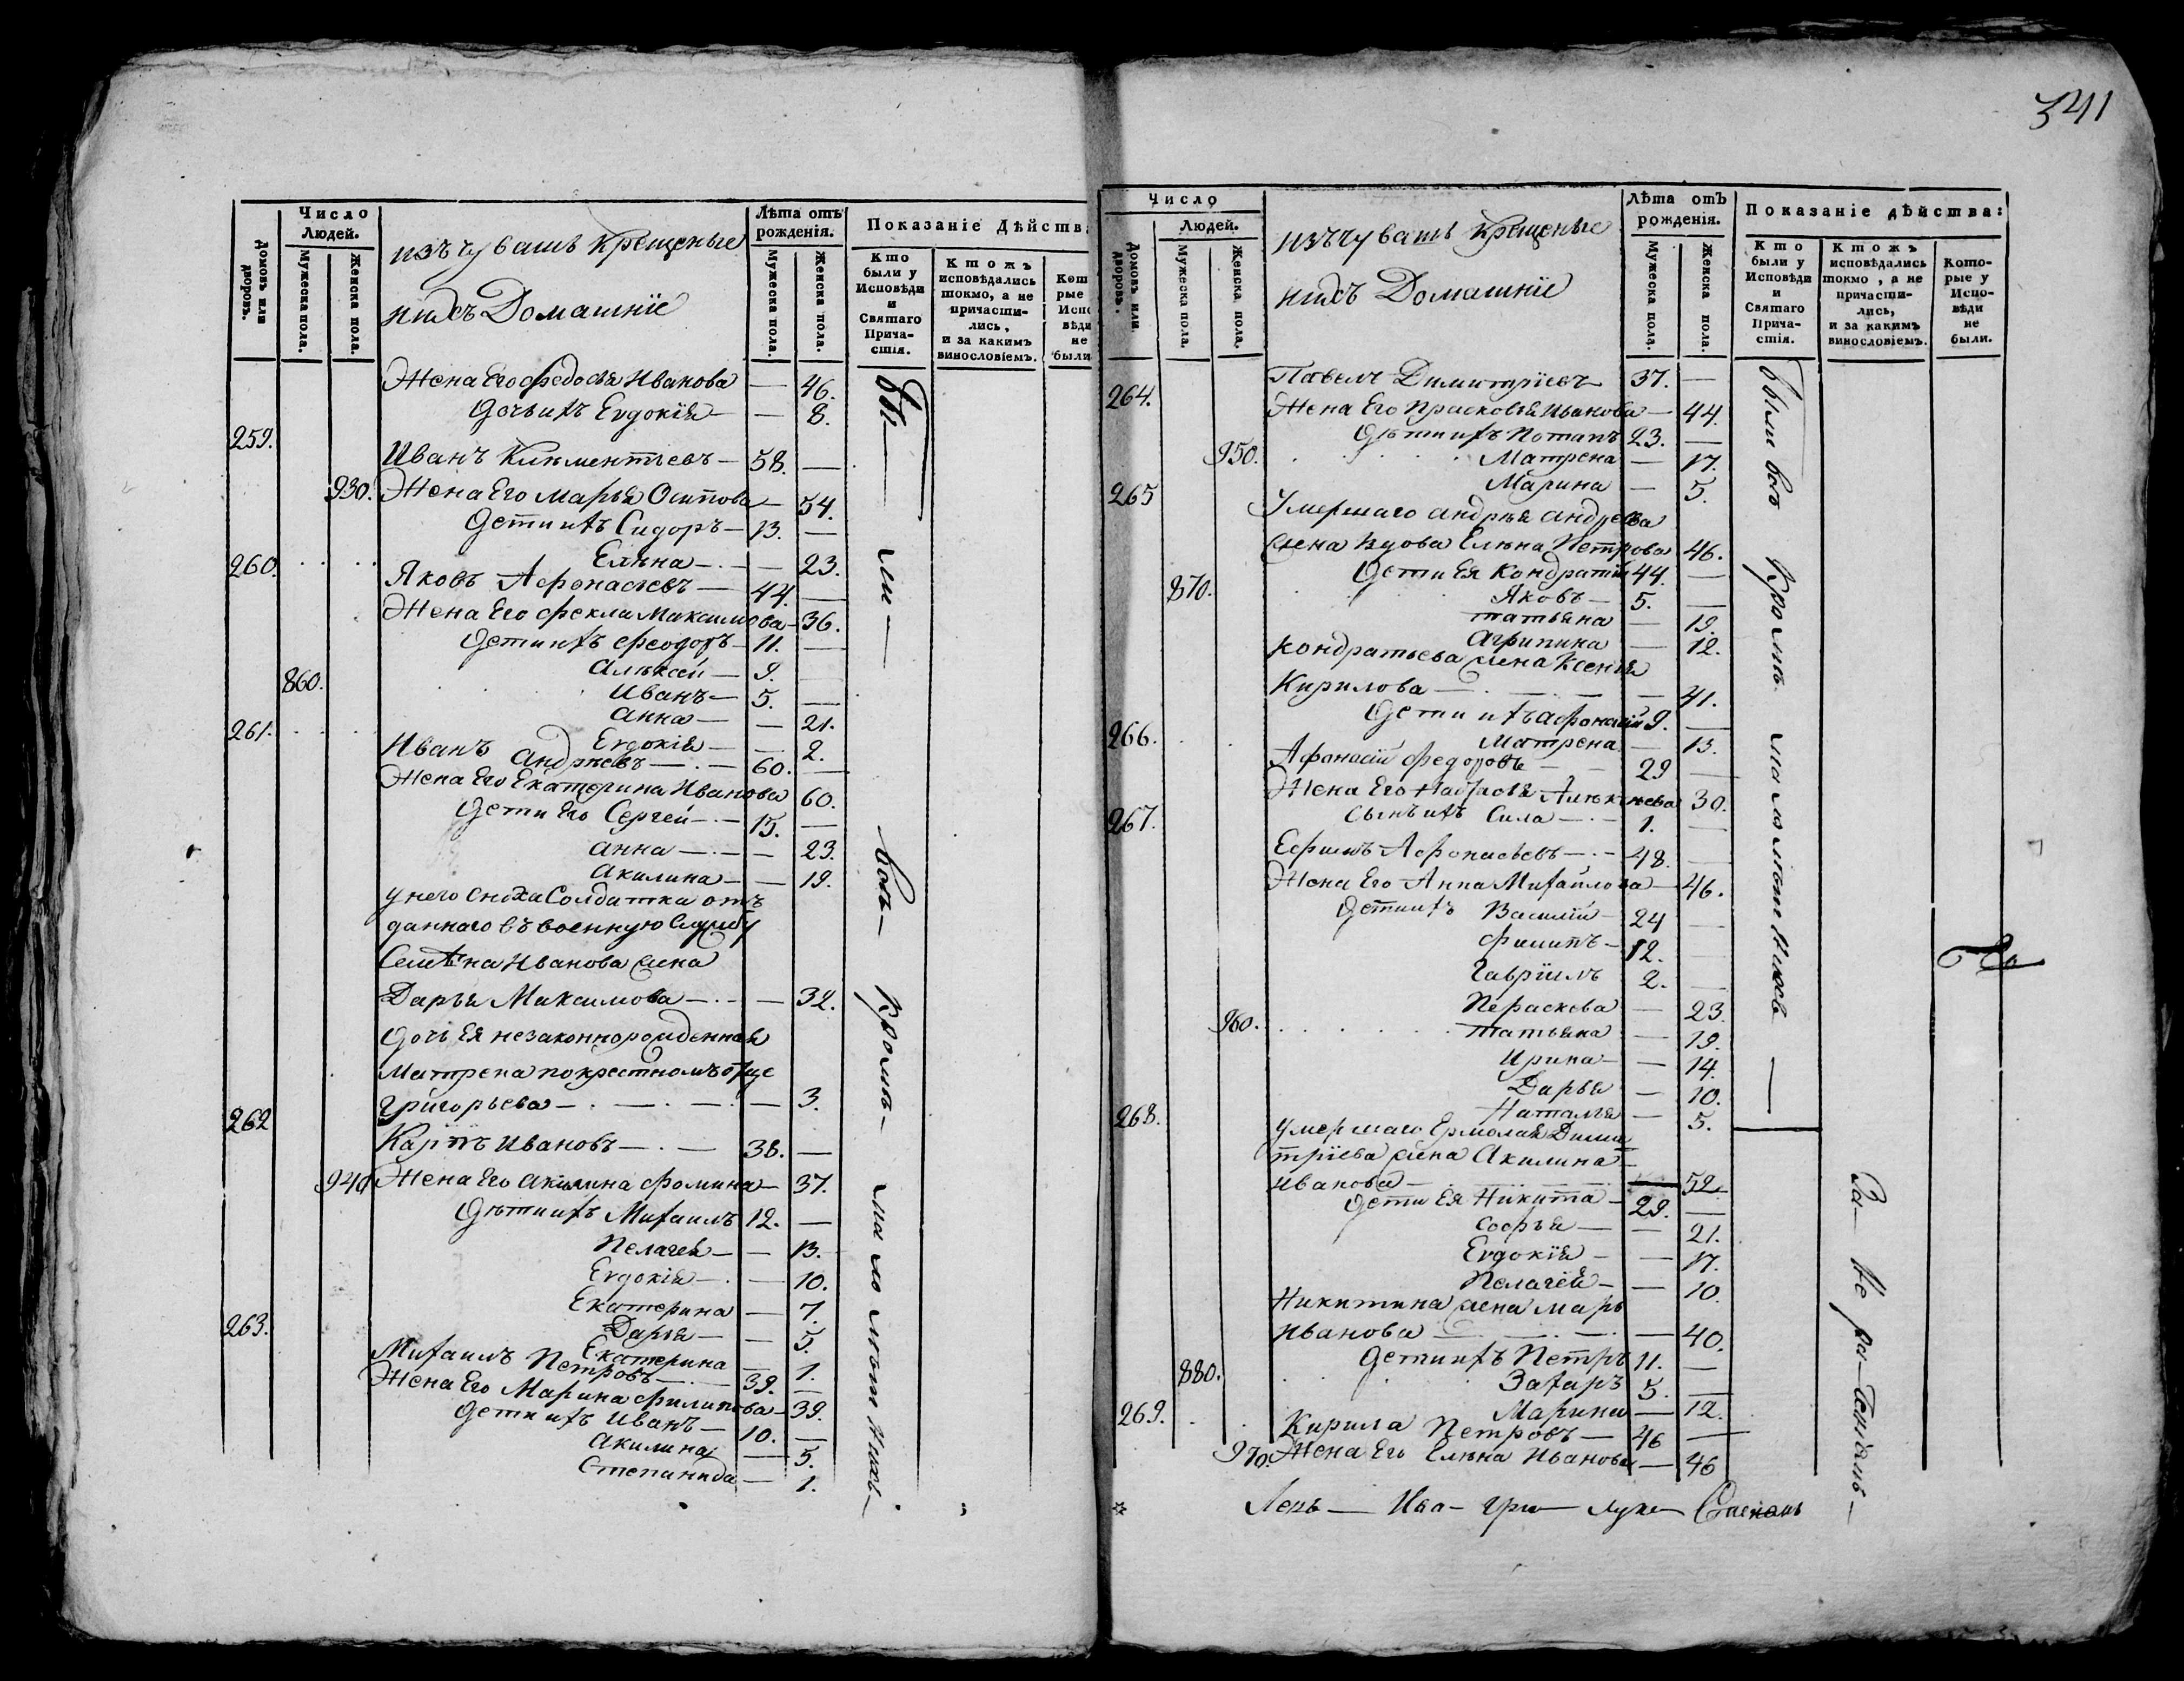 341
Число Людей.
Домовъ или дворовъ.
Мужеска пола.
Женска пола.
изъ чувашъ крещеные
и ихъ Домашніе
Лѣта отъ рожденія.
Мужеска пола.
Женска пола.
Показаніе Дѣйств
Кто были у Исповѣди и Святаго Прича-стія.
Ктожъ исповѣдались токмо, а не причасти-лись, и за какимъ винословіемъ.
Кот рые Испо вѣди не были
Жена Его Федосья Иванова — 46.
Дочь ихъ Евдокія — — 8.
259.
Иванъ Климентьевъ — 58. —
930. Жена Его Марья Осипова — 54.
Дети ихъ Сидоръ — 13. —
Елѣна — — 23.
260. Яковъ Афонасьевъ — 44. —
Жена Его Фекла Максимова — 36.
Дети ихъ Феодоръ — 11. —
Алѣксей — 9.
860. Иванъ — 5. —
Анна — — 21.
Евдокія — — 2.
261. Иванъ Андрѣевъ — 60. —
Жена Его Екатерина Иванова 60.
Дети Его Сергей — 15. —
Анна — — 23.
Акилина — — 19.
у него сноха Солдатка отъ
даннаго въ военную Службу
Семѣна Иванова жена
Дарья Максимова — — 32.
дочь Ея незаконнорожденная
Матрена по крестномъ отце
Григорьева — — — 3.
262
Карпъ Ивановъ — 38. —
940 Жена Его Акилина Фомина — 37.
Дѣти ихъ Михаилъ 12. —
Пелагея — — 13.
Евдокія — — 10.
Екатерина — 7.
Дарья — — 5.
Екатерина — 1.
263. Михаилъ Петровъ — 39. —
Жена Его Марина Филипова — 39.
Дети ихъ Иванъ — 10. —
Акилина — 5.
Степанида — 1.
бы — ли — вси — кромѣ — ма ло лѣт нихъ —
Число Людей.
Домовъ или дворовъ.
Мужеска пола.
Женска пола.
изъ чувашъ крещеные
и ихъ Домашніе
Лѣта отъ рожденія.
Мужеска пола.
Женска пола.
Показаніе дѣйства:
Кто были у Исповѣди и Святаго Прича-стія.
Ктожъ исповѣдались токмо, а не причасти-лись, и за какимъ винословіемъ.
Кото-рые у Испо-вѣди не были.
264. Павелъ Димитріевъ 37. —
Жена Его Прасковья Иванова — 44.
Дѣти ихъ Потапъ 23. —
950. Матрена — 17.
Марина — 5.
265
Умершаго Андрѣя Андреева
жена вдова Елѣна Петрова 46.
Дети Ея Кондратій 44. —
870. Яковъ — 5. —
Татьяна — 19.
Агрипина — 12.
Кондратьева жена Ксенія
Кирилова — — — 41.
Дети ихъ Афонасій 9. —
Матрена — 13.
266. Афанасій Федоровъ — 29 —
Жена Его Настасья Алѣксѣева 30.
сынъ ихъ Сила — 1. —
267.
Ефимъ Афонасьевъ — 48. —
Жена Его Анна Михайлова — 46.
Дети ихъ Василій — 24 —
Филипъ — 12. —
Гавріилъ 2. —
Пераскева — 23.
960. Татьяна — 19.
Ирина — — 14.
Дарья — 10.
Наталья — 5.
268.
умершаго Ермолая Дими
тріева жена Акилина
Иванова — — 52
Дети Ея Никита — 29. —
Софья — — 21.
Евдокія — — 17.
Пелагея — — 10.
Никитина жена Марь
Иванова — — 40.
Дети ихъ Петръ 11. —
880. Захаръ 5. —
Марина — 12.
269. Кирила Петровъ — 46 —
970. Жена Его Елѣна Иванова — 46
были вси кромѣ ма ло лѣт нихъ —
За — Не ра —
Ива — Гри —